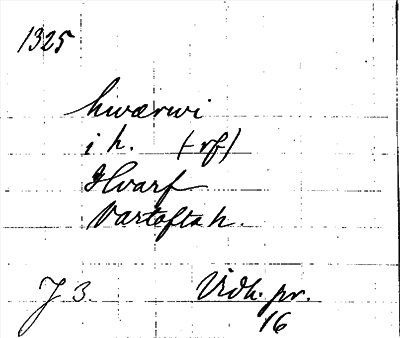 1325
hwærwi
i h. (-rf)
Hvarf
Vartofta h.
J 3. Vidh. pr.
16